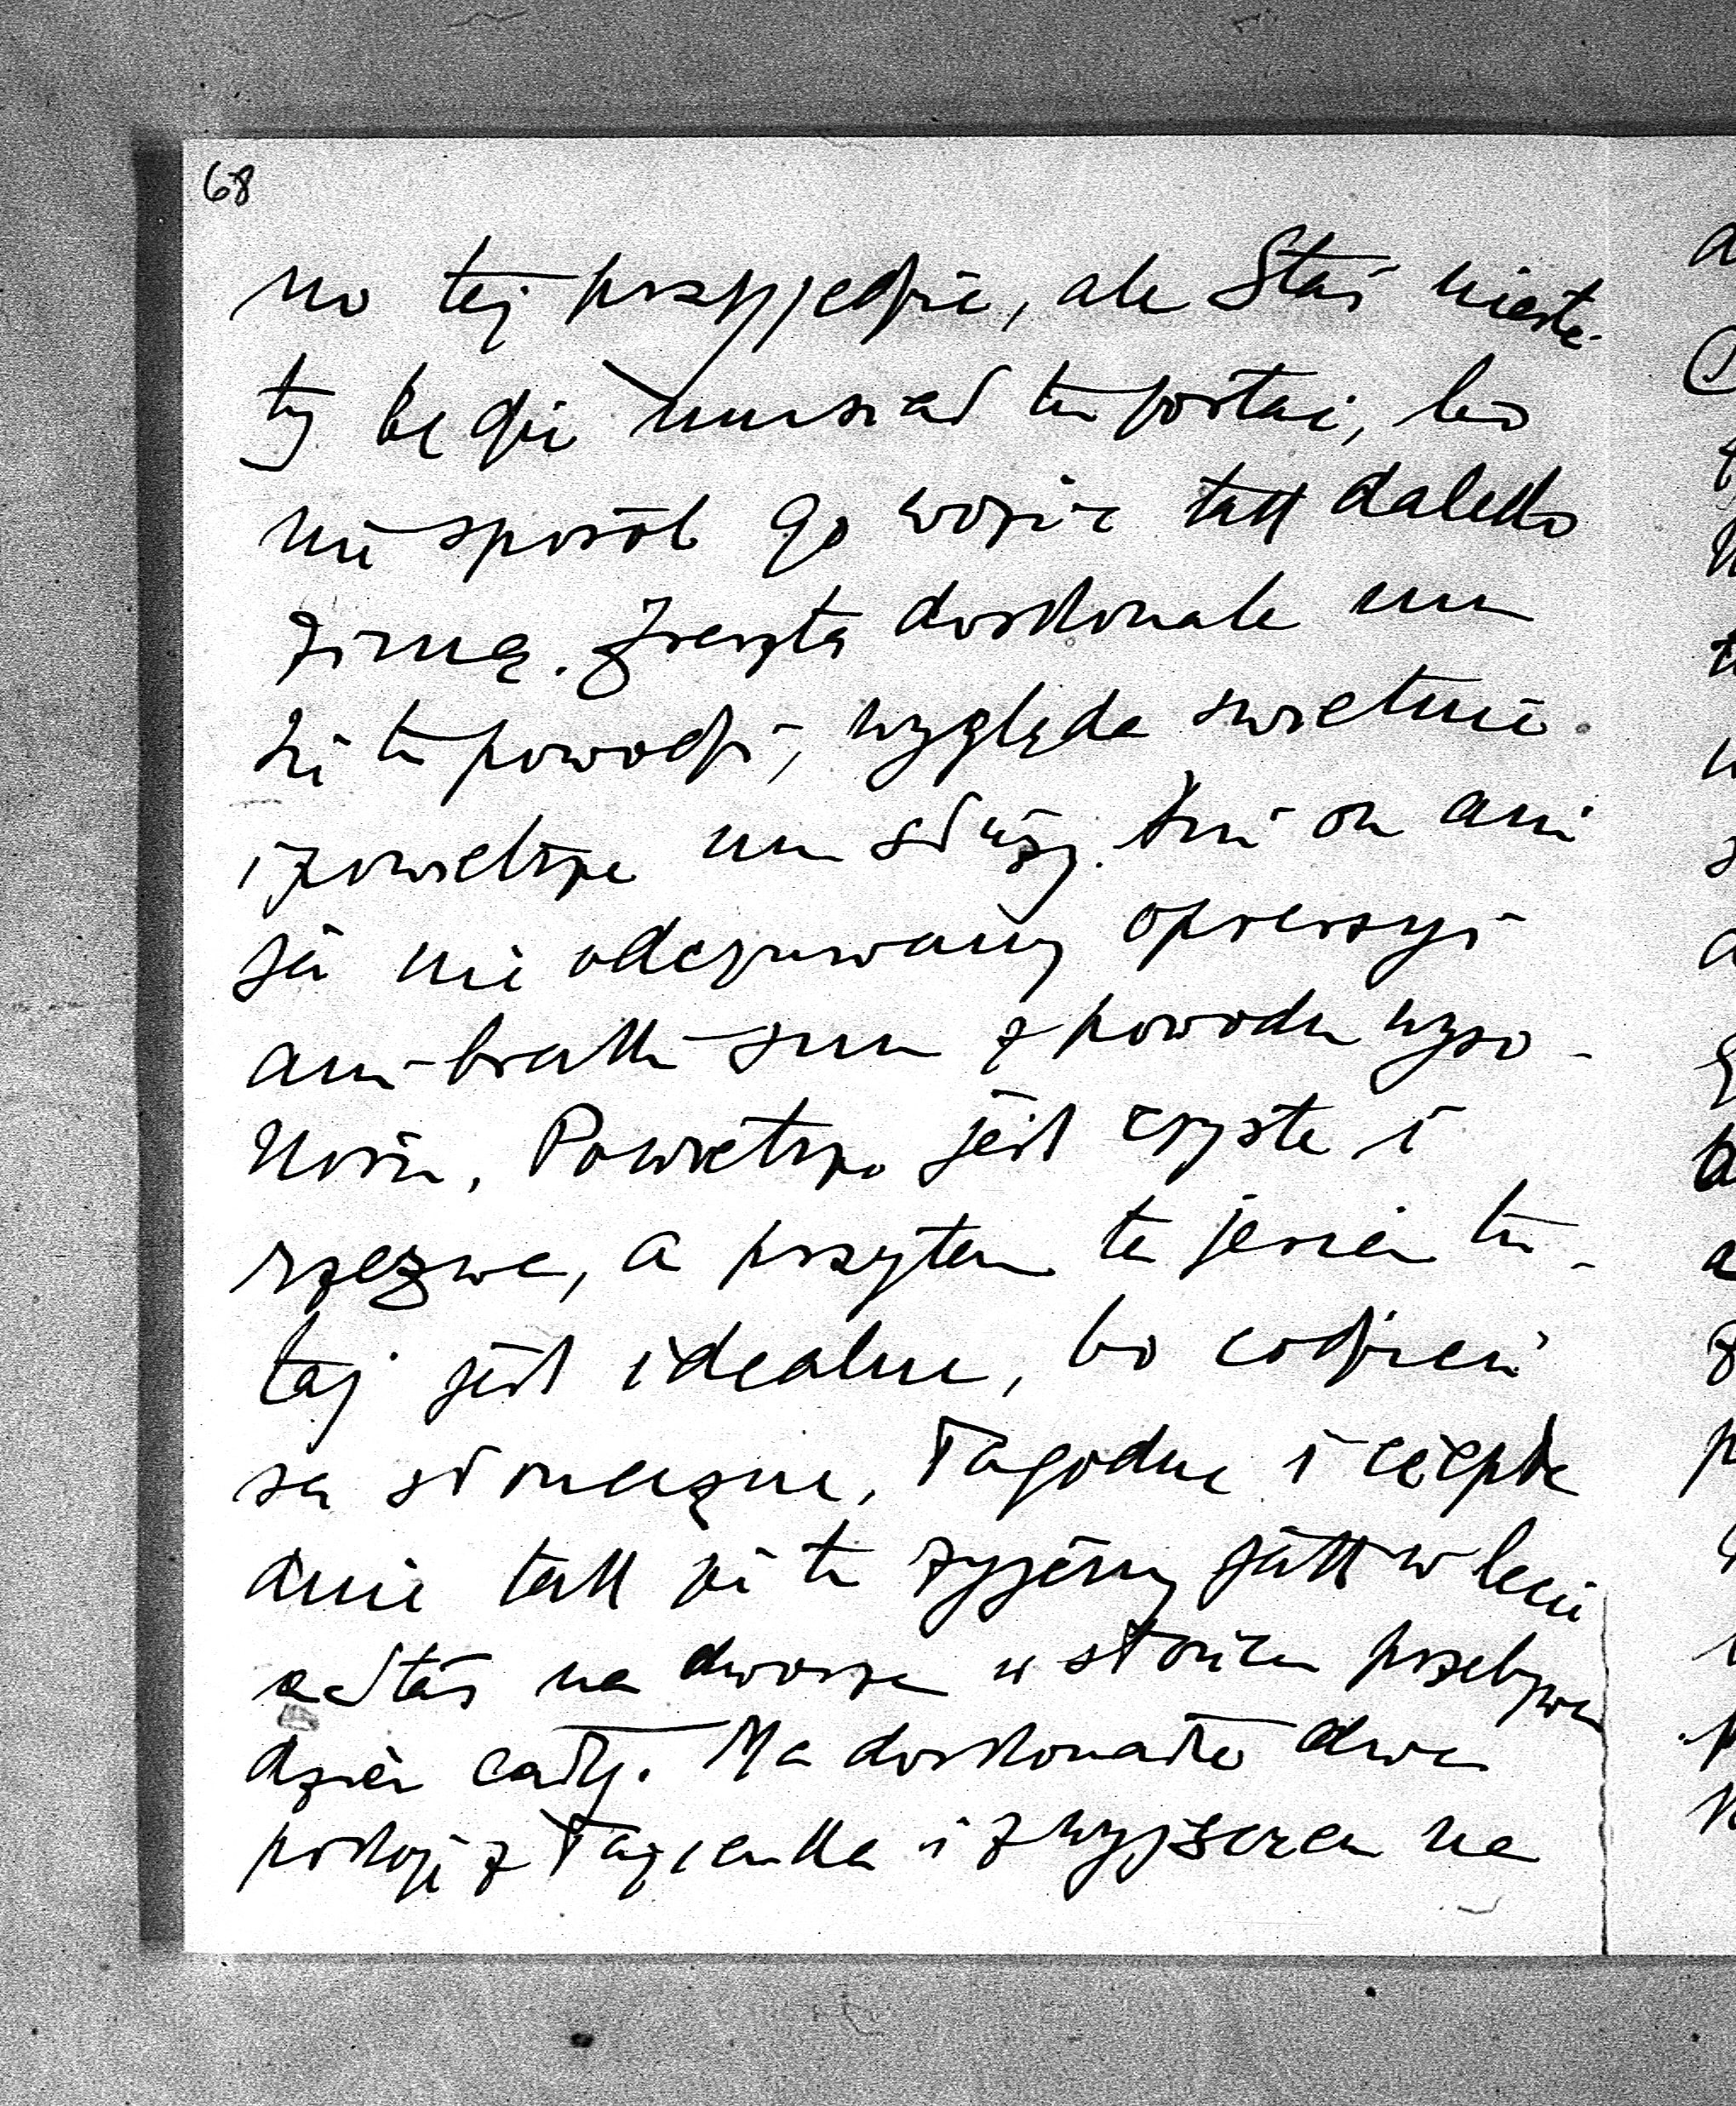 68
no też przyjedzie, ale Staś nieste-
ty będzie musiał tu zostać, bo
nie sposób go wozić tak daleko
zimą. Zresztą doskonale mu
się tu powodzi, wygląda świetnie
i powietrze mu służy. Ani on ani
ja nie odczuwamy opresyi
ani braku snu z powodu wyso-
kości. Powietrze jest czyste i
rzeźwe, a przytem ta jesień tu-
taj jest idealna, bo codzień
są słoneczne, łagodne i ciepłe
dnie tak że tu żyjemy jak w lecie
a Staś na dworze w słońcu przebywa
dzień cały. Ma doskonałe dwa
pokoje z łazienką i z wyjściem na